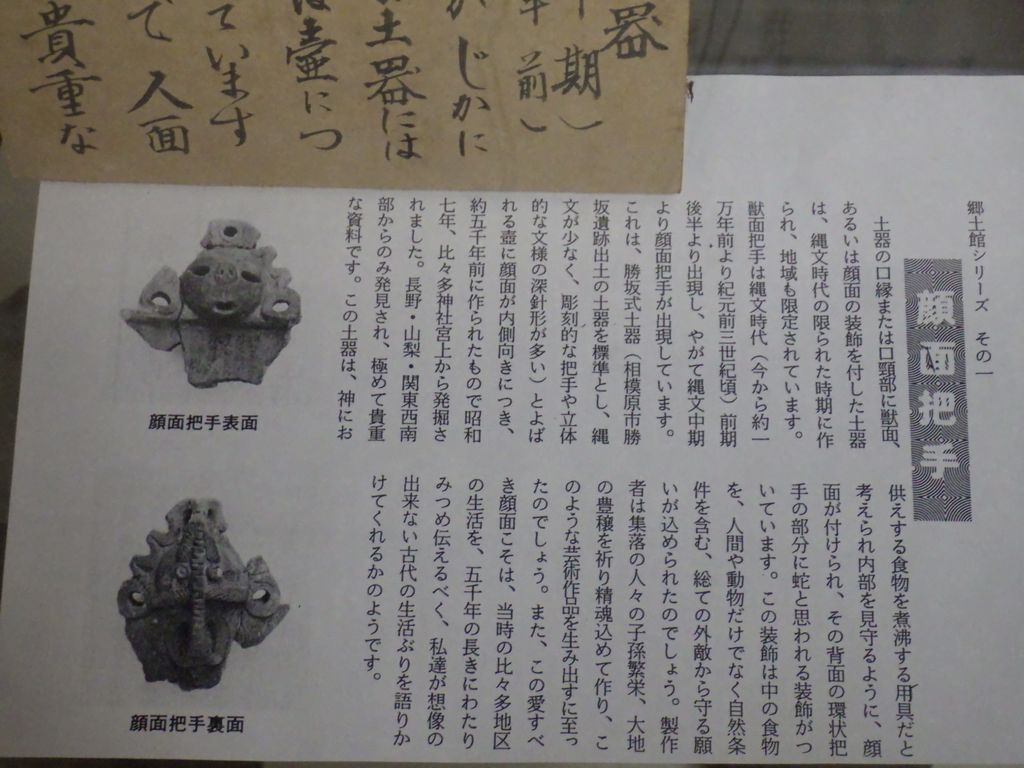 器
期）
年前）
じかに
土器には
は壷につ
ています
で人面
貴重な
郷土館シリーズ　その一
顔面把手
土器の口縁または口頸部に獣面、
あるいは顔面の装飾を付した土器
は、縄文時代の限られた時期に作
られ、地域も限定されています。
獣面把手は縄文時代（今から約一
万年前より紀元前三世紀頃）前期
後半より出現し、やがて縄文中期
より顔面把手が出現しています。
これは、勝坂式土器（相模原市勝
坂遺跡出土の土器を標準とし、縄
文が少なく、彫刻的な把手や立体
的な文様の深針形が多い）とよば
れる壺に顔面が内側向きにつき、
約五千年前に作られたもので昭和
七年、比々多神社宮上から発掘さ
れました。長野・山梨・関東西南
部からのみ発見され、極めて貴重
な資料です。この土器は、神にお
供えする食物を煮沸する用具だと
考えられ内部を見守るように、顔
面が付けられ、その背面の環状把
手の部分に蛇と思われる装飾がつ
いています。この装飾は中の食物
を、人間や動物だけでなく自然条
件を含む、総ての外敵から守る願
いが込められたのでしょう。製作
者は集落の人々の子孫繁栄、大地
の豊穣を祈り精魂込めて作り、こ
のような芸術作品を生み出すに至っ
たのでしょう。また、この愛すべ
き顔面こそは、当時の比々多地区
の生活を、五千年の長きにわたり
みつめ伝えるべく、私達が想像の
出来ない古代の生活ぶりを語りか
けてくれるかのようです。
顔面把手表面
顔面把手裏面